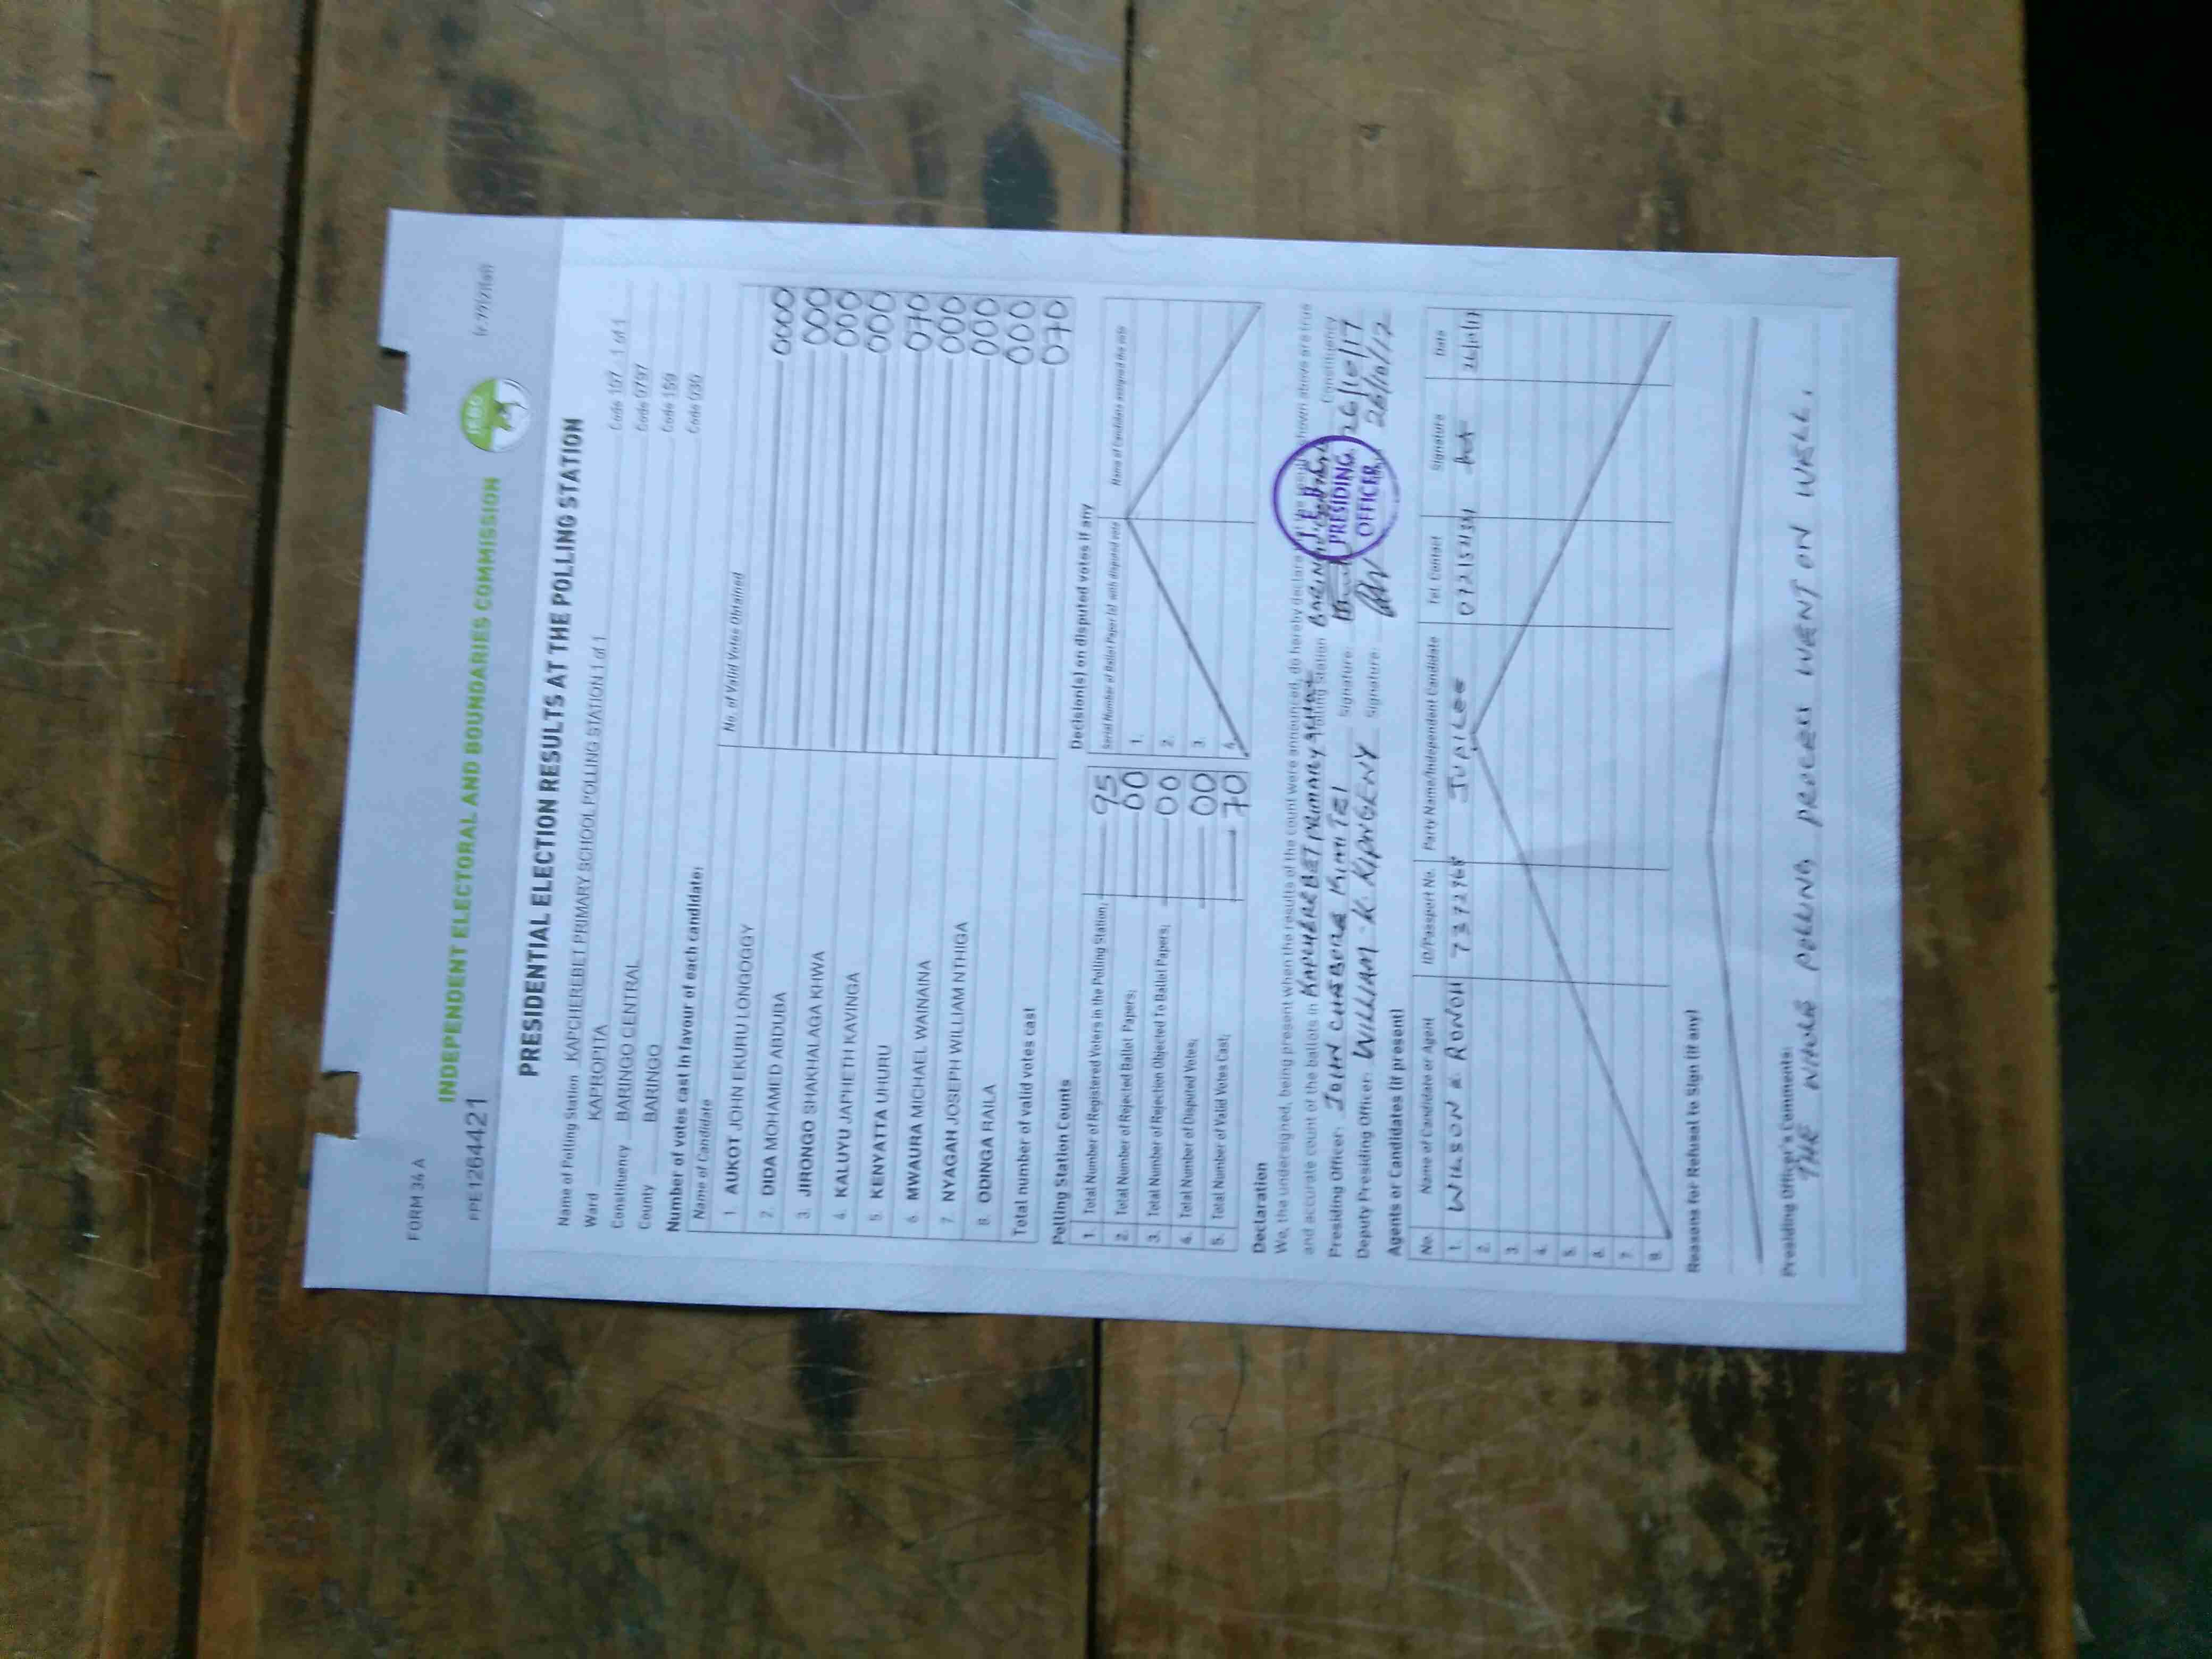 FORM 36 A
FPE1264421
INDEPENDENT ELECTORAL AND BOUNDARIES COMMISSION
IEBC
PRESIDENTIAL ELECTION RESULTS AT THE POLLING STATION
Name of Polling Station KAPCHEREBET PRIMARY SCHOOL POLLING STATION 1 of 1 Code 107 1 of 1
Ward KAPROPITA Code 0797
Constituency BARINGO CENTRAL Code 159
County BARINGO Code 030
Number of votes cast in favour of each candidate:
Name of Candidate No. of Valid Votes Obtained
1. AUKOT JOHN EKURU LONGOGGY 0000
2. DIDA MOHAMED ABDUBA 000
3. JIRONGO SHAKHALAGA KHWA 000
4. KALUYU JAPHETH KAVINGA 000
5. KENYATTA UHURU 070
6. MWAURA MICHAEL WAINAINA 000
7. NYAGAH JOSEPH WILLIAM NTHIGA 000
8. ODINGA RAILA 000
Total number of valid votes cast 070
Polling Station Counts
1. Total Number of Registered Voters in the Polling Station; 95
2. Total Number of Rejected Ballot Papers; 00
3. Total Number of Rejection Objected To Ballot Papers; 00
4. Total Number of Disputed Votes; 00
5. Total Number of Valid Votes Cast; 70
Decision(s) on disputed votes if any
Serial Number of Ballot Paper (s) with disputed vote Name of Candidate assigned the vote
1.
2.
3.
4.
Declaration
We, the undersigned, being present when the results of the count were announced, do hereby declare that the results shown above are true
and accurate count of the ballots in KAPCHEREBET PRIMARY Polling Station BARINGO CENTRAL Constituency
Presiding Officer: JOHN CHEBORE KIMITEI Signature: 26/10/17
Deputy Presiding Officer: WILLIAM K. KIPNGENY Signature: 26/10/17
I.E.B.C
PRESIDING
OFFICER
Agents or Candidates (if present)
No. Name of Candidate or Agent ID/Passport No. Party Name/Independent Candidate Tel. Contact Signature Date
1. WILSON RONOH JUBILEE 26/10/17
2.
3.
4.
5.
6.
7.
8.
Reasons for Refusal to Sign (if any)
Presiding Officer's Comments:
THE WHOLE POLLING PROCESS WENT ON WELL.